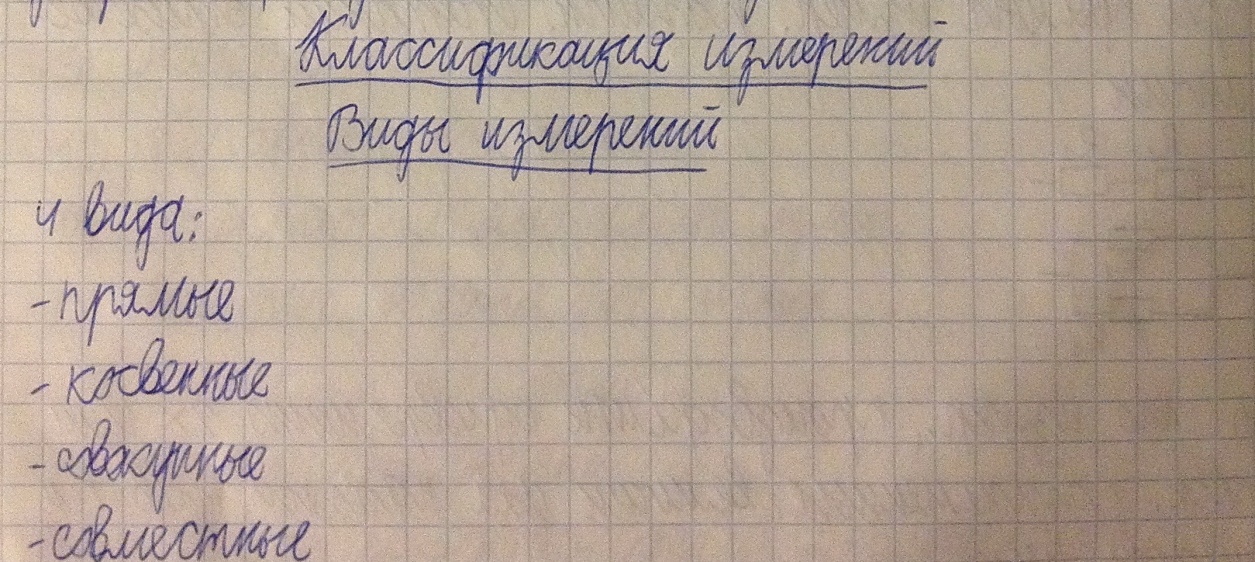 Классификация измерений
Виды измерений
4 вида:
- прямые
- косвенные
- совокупные
- совместные